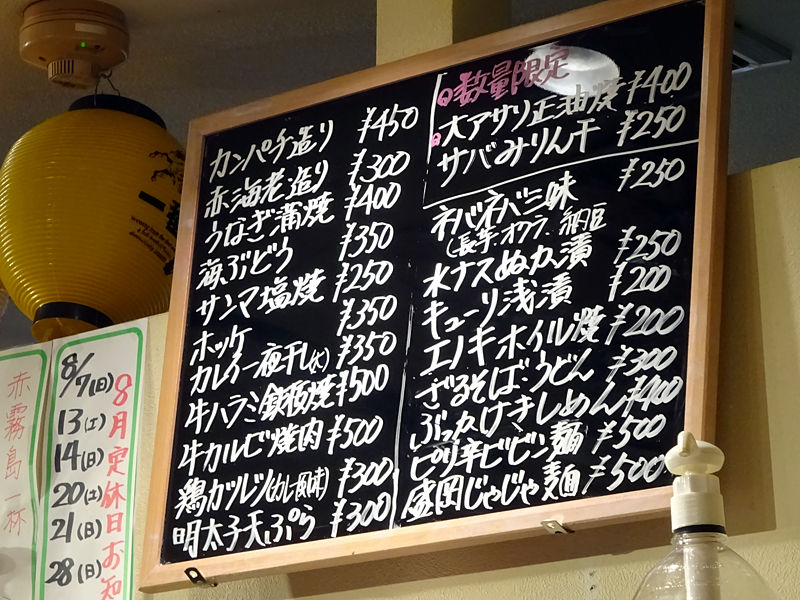 カンパチ造り ¥450
赤海老造り ¥300
うなぎ蒲焼 ¥400
海ぶどう ¥350
サンマ塩焼 ¥250
ホッケ ¥350
カルイ一夜干し(大) ¥350
牛ハラミ鉄板焼 ¥500
牛カルビ焼肉 ¥500
鶏カツレツ(カレー風味) ¥300
明太子天ぷら ¥300
数量限定
大アサリ正油焼 ¥400
サバみりん干 ¥250
ネバネバ三味 ¥250
(長芋、オクラ、納豆
水ナスぬか漬 ¥250
キューリ浅漬 ¥200
エノキホイル焼 ¥200
ざるそば・うどん ¥300
ぶっかけきしめん ¥400
ピリ辛ビビン麺 ¥500
盛岡じゃじゃ麺 ¥500
赤霧島一杯
8月定休日お知
8/7(日)
13(土)
14(日)
20(土)
21(日)
28(日)
一番